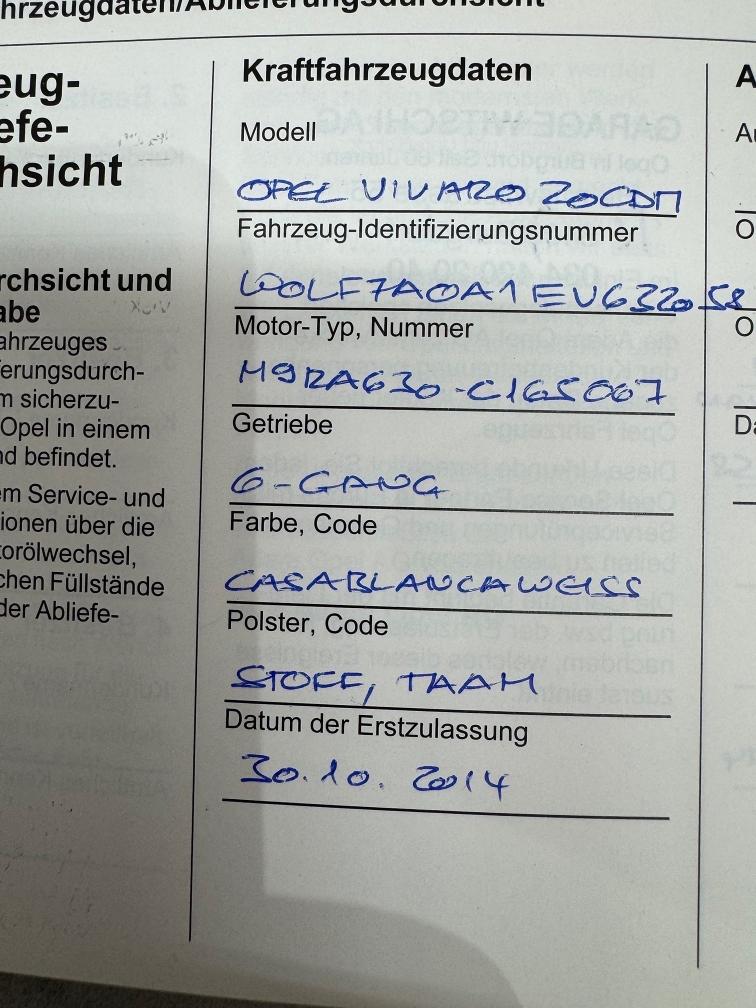 hrzeugdaten/Ablieferungsdurchsicht
eug-
efe-
hsicht
rchsicht und
abe
ahrzeuges
erungsdurch-
m sicherzu-
Opel in einem
nd befindet.
em Service- und
tionen über die
torölwechsel,
chen Füllstände
der Abliefe-
Kraftfahrzeugdaten
Modell
OPEL VIVARO 20CDTI
Fahrzeug-Identifizierungsnummer
W0LF7A0A1EV632058
Motor-Typ, Nummer
M9RA630-C165067
Getriebe
6-GANG
Farbe, Code
CASABLANCAWEISS
Polster, Code
STOFF, TAAM
Datum der Erstzulassung
30.10.2014